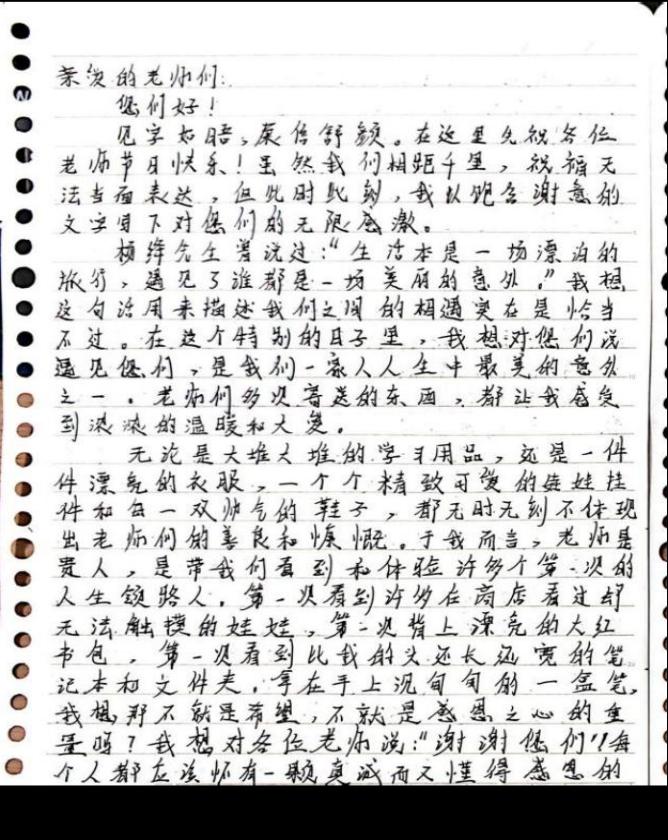 亲爱的老师们:
您们好!
见字如晤,展信舒颜。在这里先祝各位
老师节日快乐!虽然我们相距千里,祝福无
法当面表达,但此时此刻,我以饱含谢意的
文字写下对您们的无限感激。
杨绛先生曾说过:“生活本是一场漂泊的
旅行,遇见了谁都是一场美丽的意外。”我想
这句话用来描述我们之间的相遇实在是恰当
不过。在这个特别的日子里,我想对您们说
遇见您们,是我们一家人人生中最美的意外
之一。老师们多次寄送的东西,都让我感受
到滚滚的温暖和大爱。
无论是大堆大堆的学习用品,还是一件
件漂亮的衣服,一个个精致可爱的娃娃挂
件和每一双帅气的鞋子,都无时无刻不体现
出老师们的善良和慷慨。于我而言,老师是
贵人,是带我们看到和体验许多个第一次的
人生领路人。第一次看到许多在商店看过却
无法触摸的娃娃,第一次背上漂亮的大红
书包,第一次看到比我的头还长还宽的笔
记本和文件夹。拿在手上沉甸甸的一盒笔,
我想,那不就是希望,不就是感恩之心的重
量吗?我想对各位老师说:“谢谢您们”!每
个人都应该怀有一颗真诚而又懂得感恩的